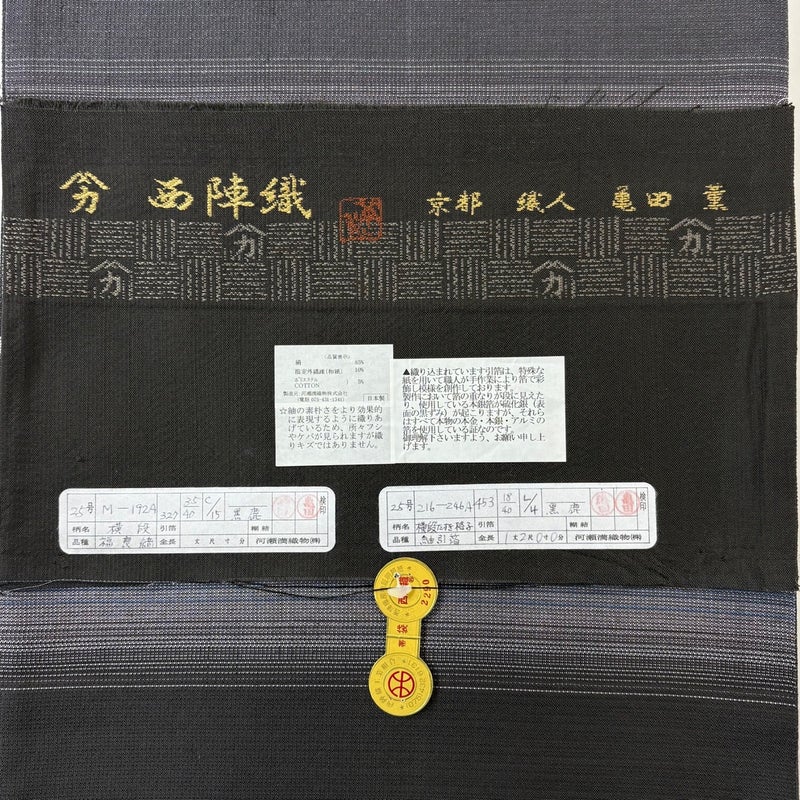 力 西陣織 京都 織人 亀田 薫
力 力
力 力
(品質表示)
絹 85%
指定外繊維(和紙) 10%
ポリエステル
COTTON } 5%
製造元 河瀬満織物株式会社
(電話 075-431-1741) 日本製
☆紬の素朴さをより効果的
に表現するように織りあ
げているため、所々フシ
やケバが見られますが織
りキズではありません。
▲織り込まれています引箔は、特殊な
紙を用いて職人が手作業により箔で彩
飾し模様を創作しております。
製作において箔の重なりが段に見えた
り、使用している本銀箔が硫化銀(表
面の黒ずみ)が起こりますが、それら
はすべて本物の本金・本銀・アルミの
箔を使用している証なのです。
御理解下さいますよう、お願い申し上
げます。
25号 M-192A 327 35/40 C/15 黒鹿 検印
柄名 横段 引箔 糊結
品種 金長 丈 尺 寸 分 河瀬満織物㈱
25号 216-246,A 453 18/40 L/4 黒鹿 検印
柄名 引箔 糊結
品種 紬引箔 金長 1丈2尺0寸0分 河瀬満織物㈱
西陣
2290